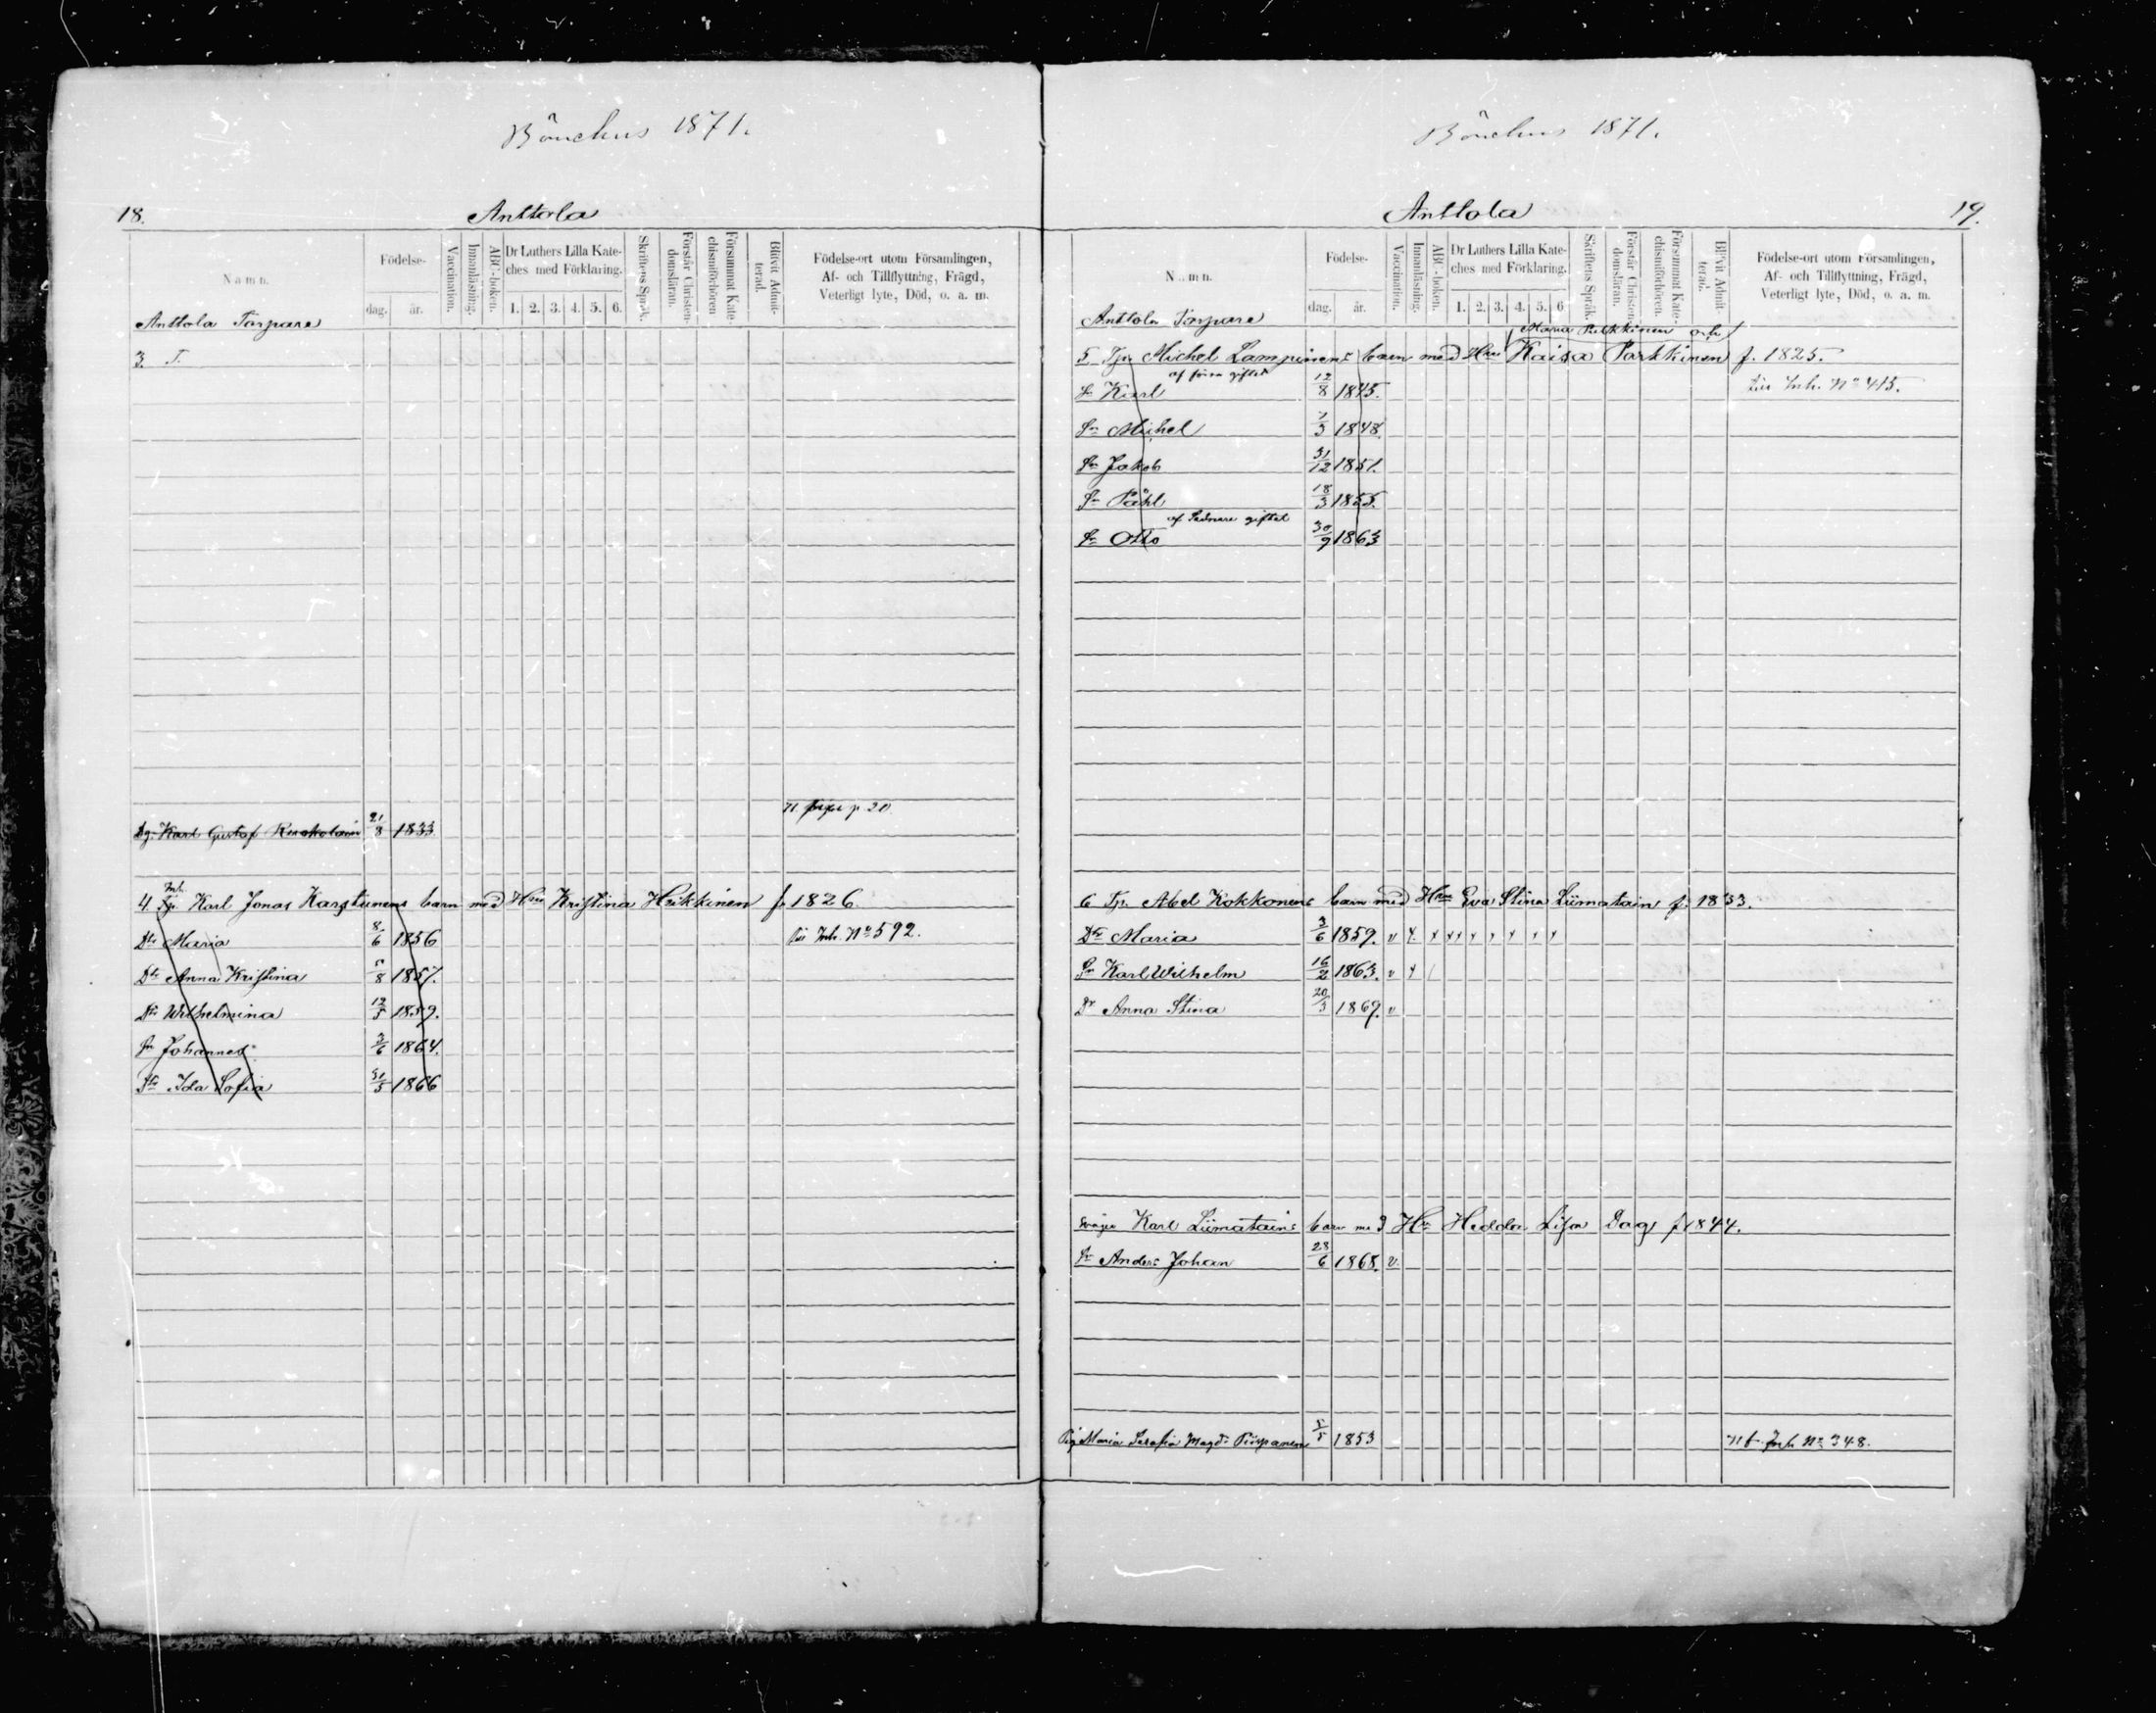 Bönehus 1871.
18.
Anttola
Namn.
Födelse-
dag.
år.
Vaccination.
Innanläsning.
ABC-boken.
Dr Luthers Lilla Kate-
ches med Förklaring.
1. 2. 3. 4. 5. 6.
Skriftens Språk.
Förstår Christen-
domsläran.
Försummat Kate-
chismiförhören
Blifvit Admit-
terad.
Födelse-ort utom Församlingen,
Af- och Tillflyttning, Frägd,
Veterligt lyte, Död, o. a. m.
Anttola Torpare
3. T.
p. 20
Karl Gustaf 21/8 1833
Inh.
4. Tp. Karl Jonas Karstunens barn med Hu Kristina Heikkinen f. 1826
Dr Maria 8/6 1856 Inh. No 592.
Dr Anna Kristina 5/8 1857.
Dr Wilhelmina 1859.
Sn Johannes 3/6 1864.
Dr Ida Sofia 31/5 1866
Bönehus 1871.
Anttola
19.
Namn.
Födelse-
dag.
år.
Vaccination.
Innanläsning.
ABC-boken.
Dr Luthers Lilla Kate-
ches med Förklaring.
1. 2. 3. 4. 5. 6
Skriftens Språk.
Förstår Christen-
domsläran.
Försummat Kate-
chismiförhören.
Blifvit Admit-
terad.
Födelse-ort utom Församlingen,
Af- och Tillflyttning, Frägd,
Veterligt lyte, Död, o. a. m.
Anttola Torpare
Maria Pulkkinen och
5. Tp. Michel Lampinens barn med Hu Kaisa Parkkinen f. 1825.
af förra giftet
Sn Karl 12/8 1845. Inh. No 415.
Sn Michel 1848.
Sn Jakob 31/12 1851.
Sn Påhl 18/3 1855.
af sednare giftet
Sn Otto 30/9 1863
6 Tp. Abel Kokkonens barn med Hu Eva Stina Liimatain f. 1833.
Dr Maria 3/6 1859. v x x x x x x x x x
Sn Karl Wilhelm 16/2 1863. v x /
Dr Anna Stina 20/3 1869. v
Svåger Karl Liimatains barn med Hu Hedda Lisa Dags f. 1844.
Sn Anders Johan 28/6 1868. v.
Pig. Maria Serafia Magd: Piispanen 1853 Inh No 348.